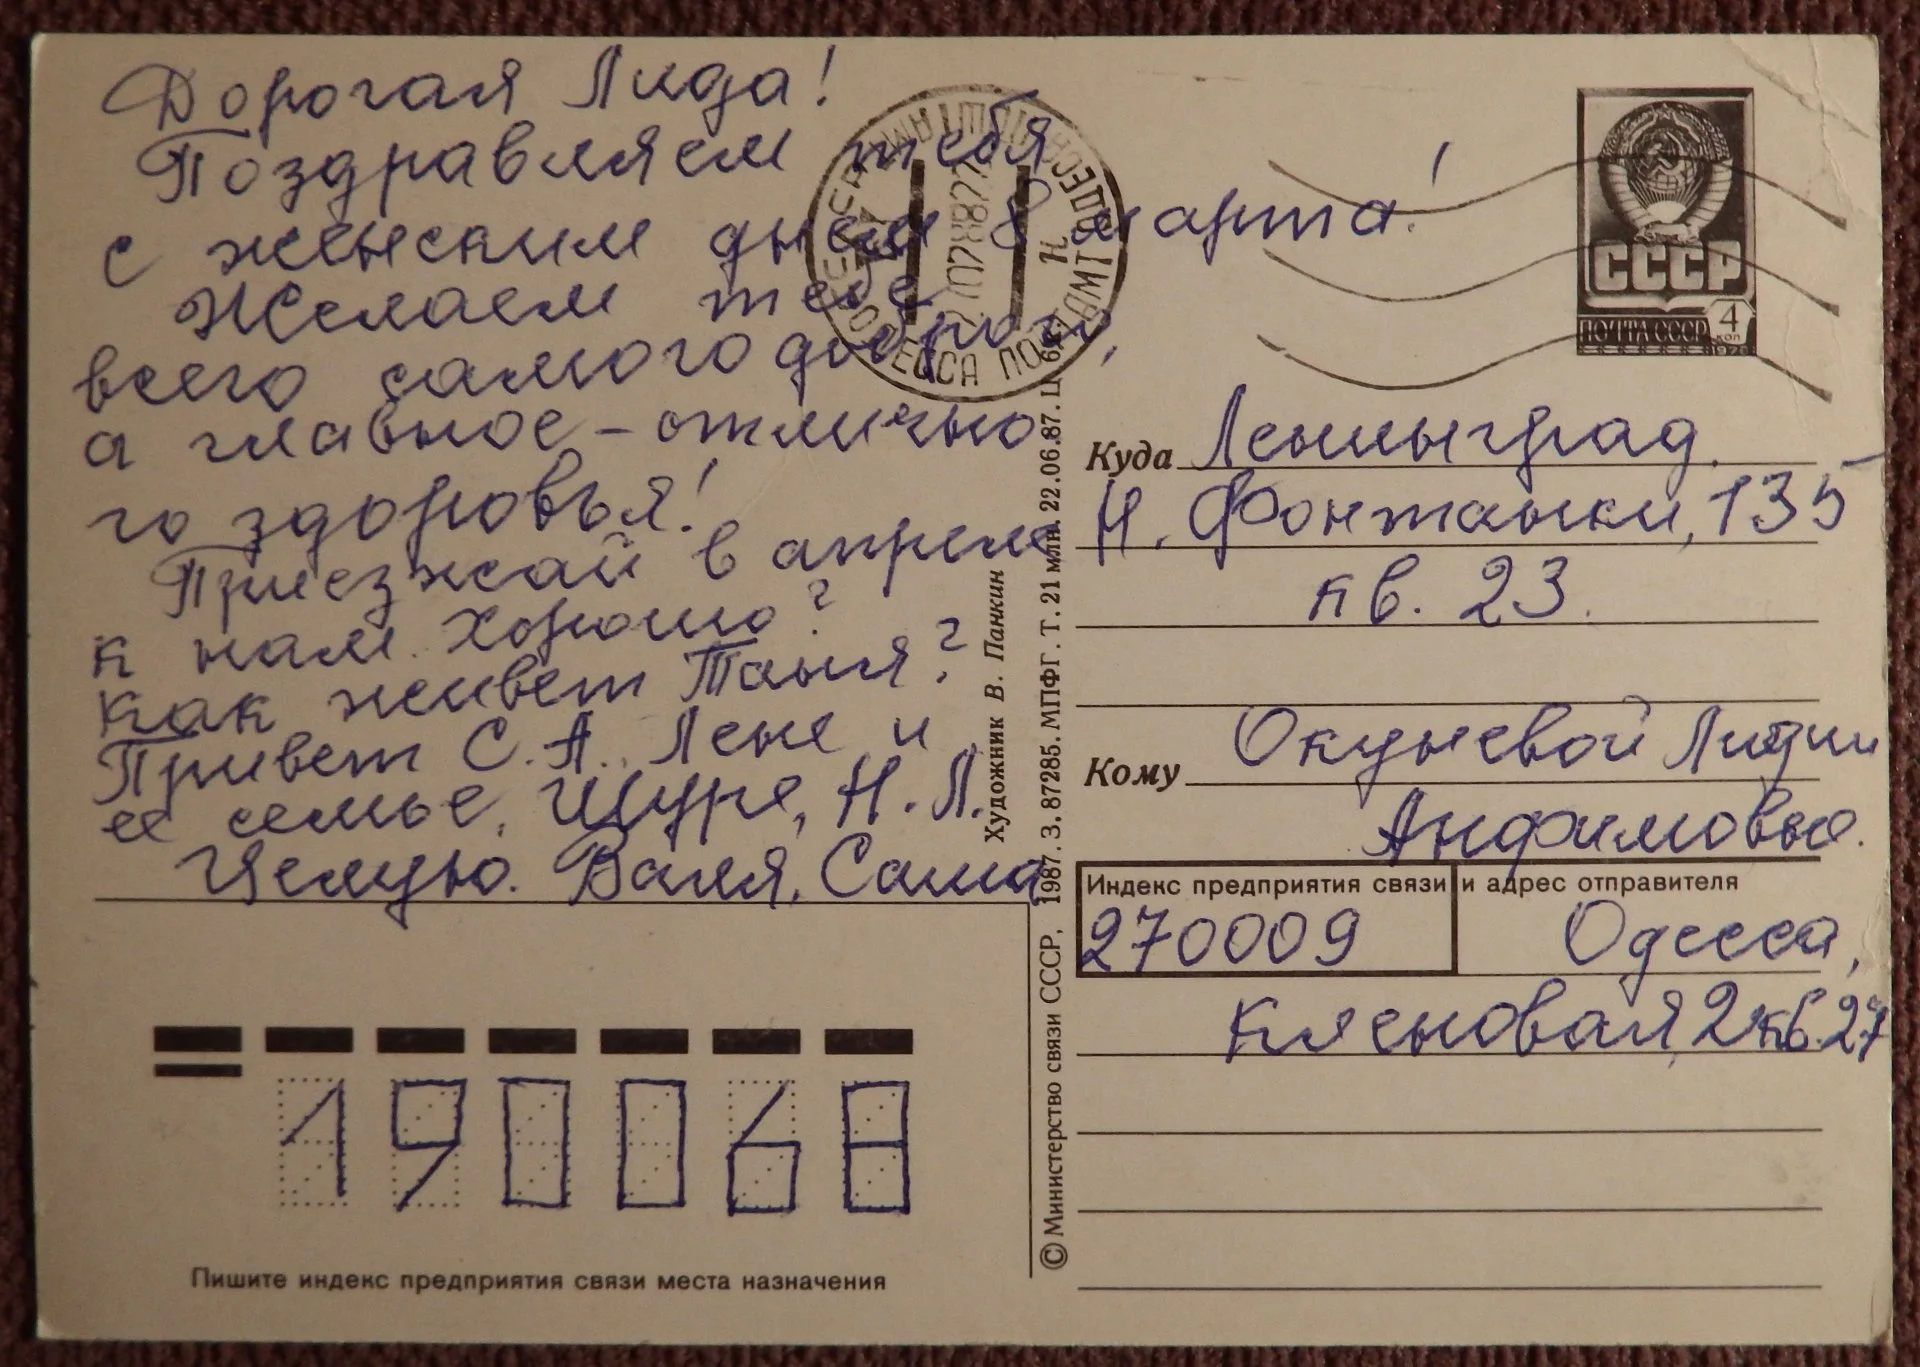 Дорогая Лида!
Поздравляем тебя
с женским днем 8 марта!
Желаем тебе
всего самого доброго,
а главное – отлично
го здоровья!
Приезжай в апреле
к нам. Хорошо?
Как живет Таня?
Привет С.А., Лене и
ее семье, Шуре, Н.Л.
Целую. Валя, Саша
ОДЕССА ПОЧТАМТ
СССР
ПОЧТА СССР
4
коп
Куда Ленинград.
Н. Фонтанки, 135
кв. 23.
Кому Окуневой Лидии
Анфимовне.
Индекс предприятия связи и адрес отправителя
270009 Одесса,
Кленовая, 2 кв. 27
Художник В. Панкин
© Министерство связи СССР, 1987. З. 87285. МПФГ. Т. 21 млн. 22.06.87. Ц. 6
190068
Пишите индекс предприятия связи места назначения